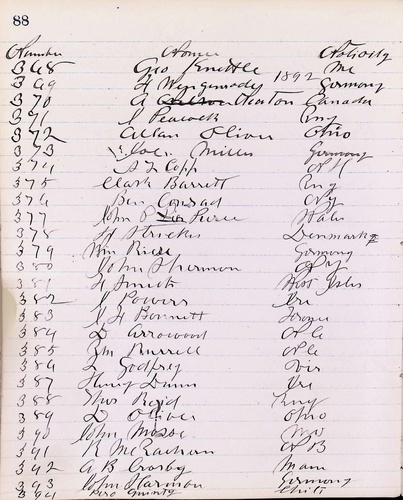 88
Number Name Nativity
368 Geo Knettle Me
369 H Wengenrody 1892 Germany
370 A Denton Canada
371 J Peacock Eng
372 Allan Oliver Ohio
373 Joe Miller Germany
374 A L Copp N H
375 Clark Barrett Eng
376 Ben Conrad N Y
377 John P Pierce Wales
378 H Stricker Denmark
379 Wm Riese Germany
380 John Sherman N Y
381 H Smick
382 J Powers Ire
383 J H Bonnett
384 D Arrowood N C
385 Wm Burrell N C
386 L Godfrey Vir
387 Henry Dunn Ire
388 Thos Reid Eng
389 D Oliver Ohio
390 John Mosse
391 R McEachan N B
392 A B Crosby Mam
393 John Harmon Germany
394 Pero Chili